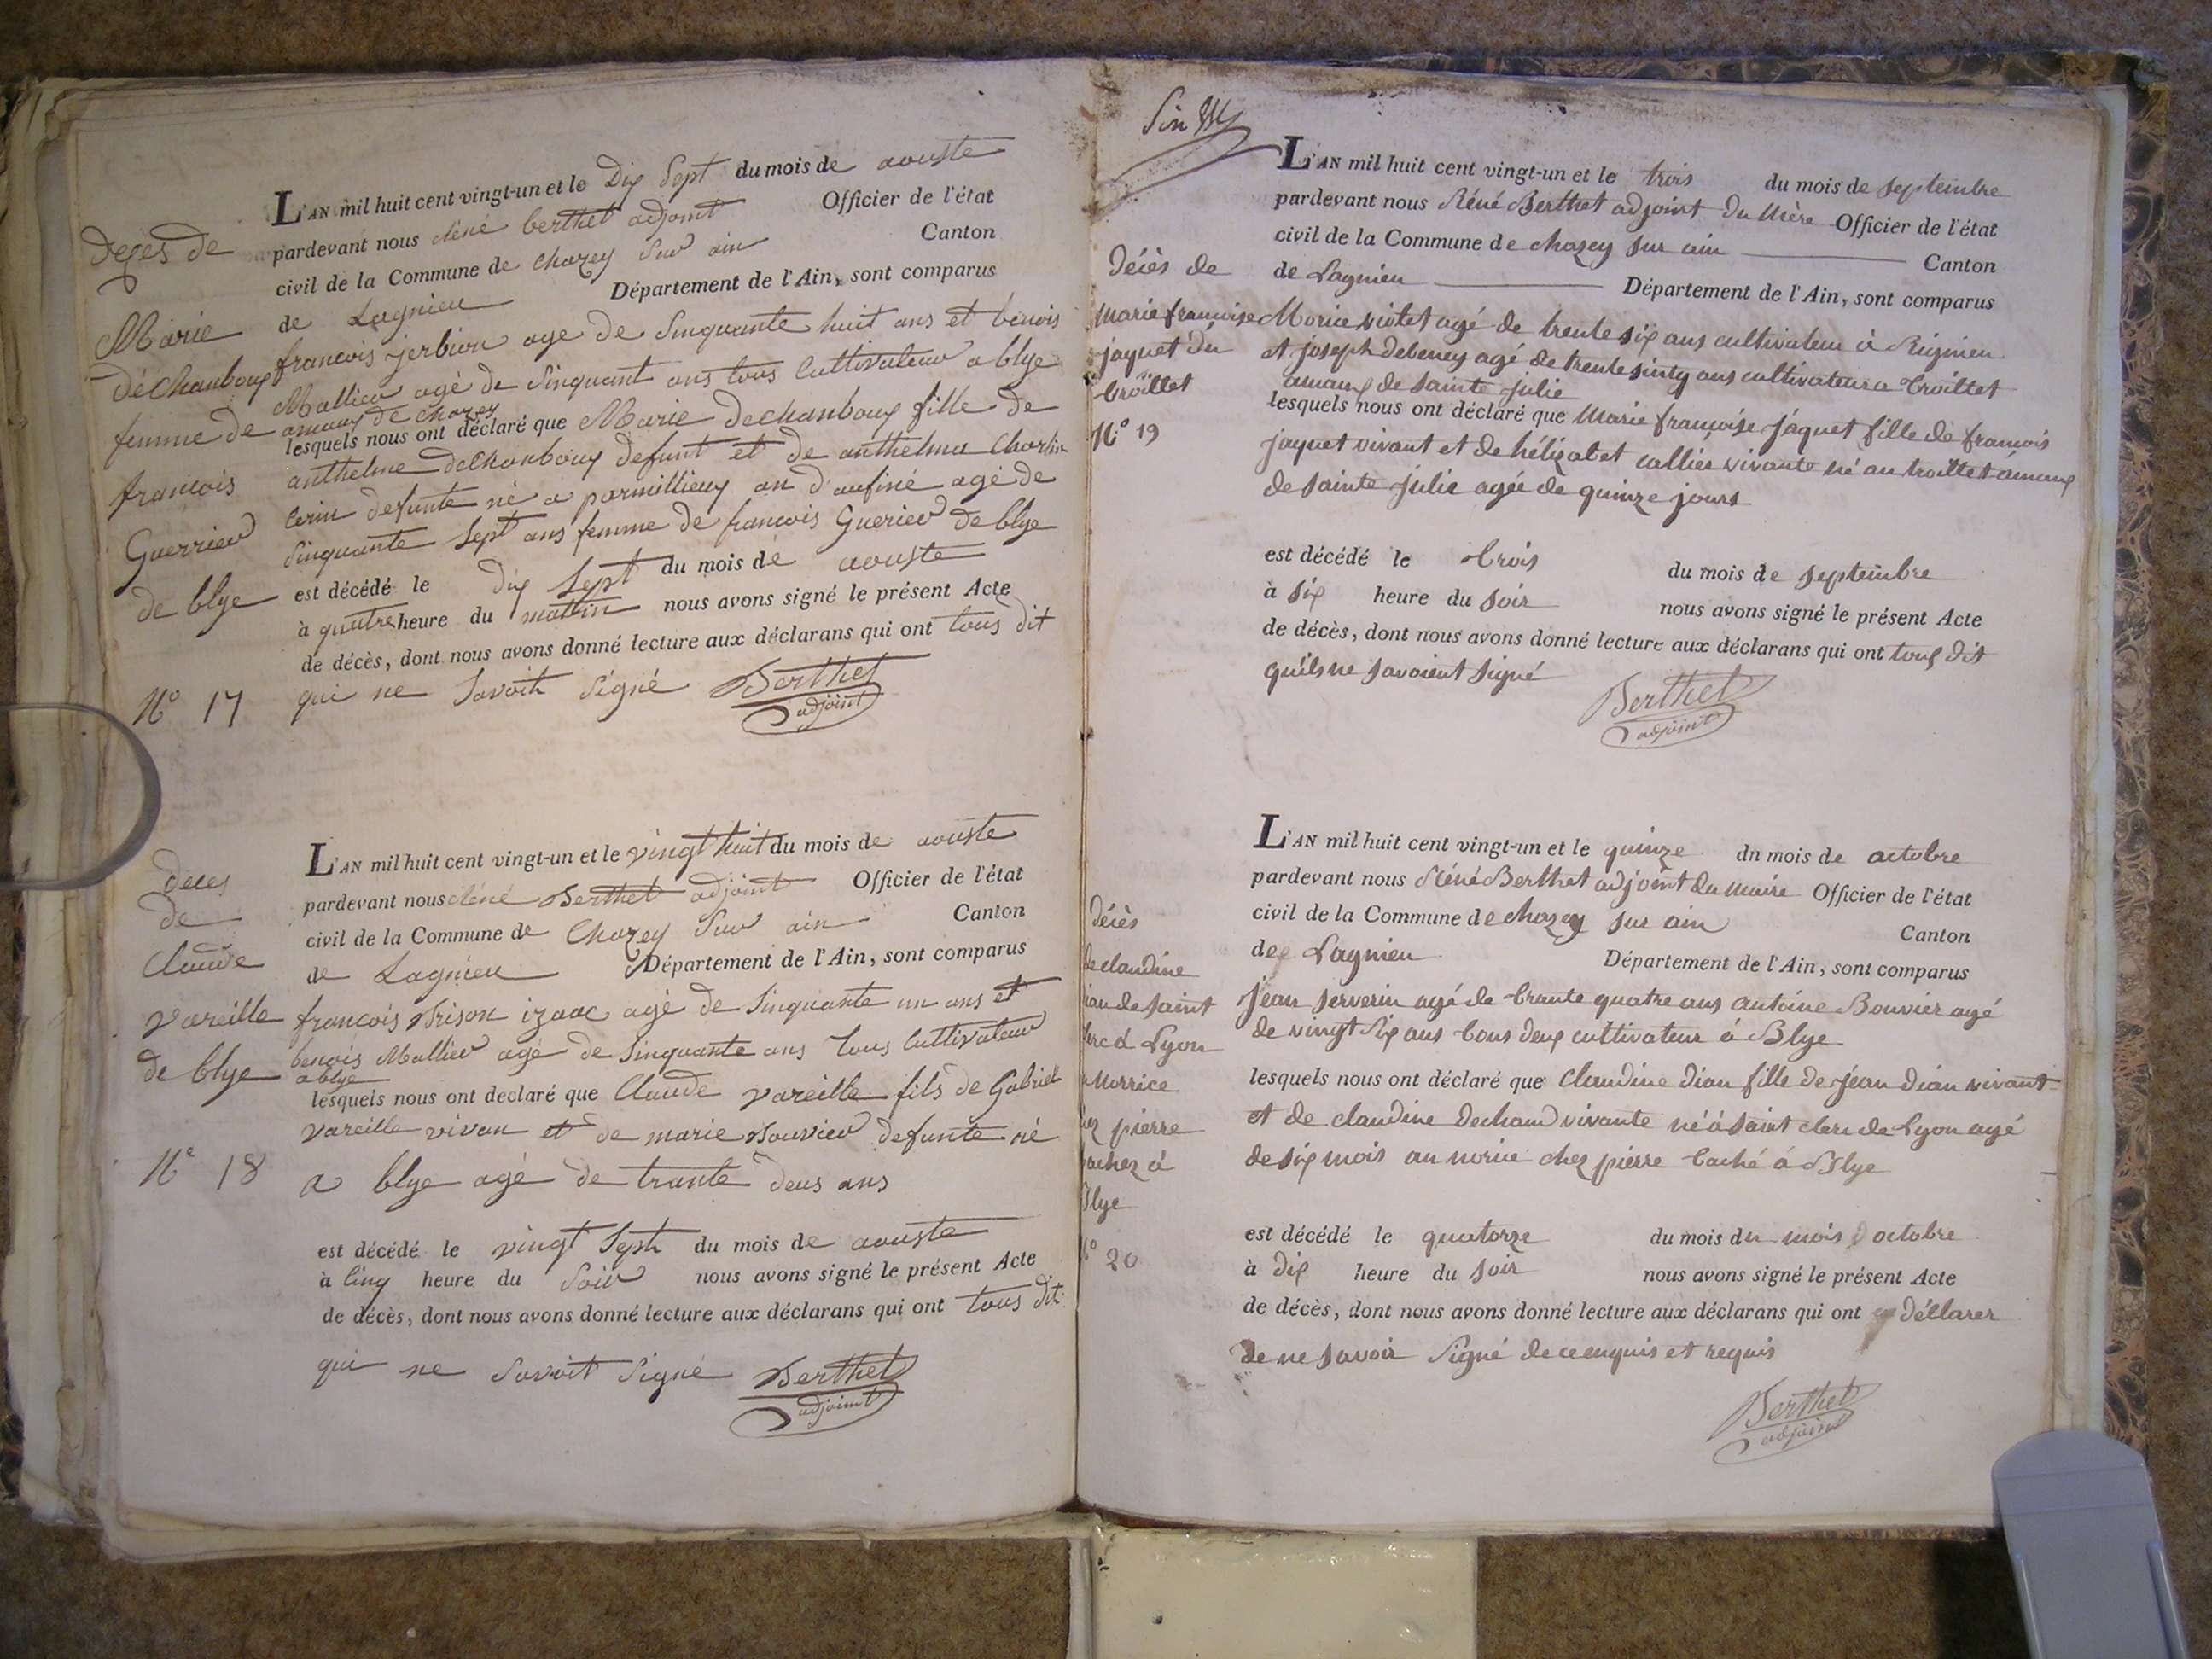 Décès de
Marie
déchanboux
femme de
francois
Guerrier
de blye
N° 17
L'AN mil huit cent vingt-un et le Dix Sept du mois de aouste
pardevant nous réné berthet adjoint Officier de l'état
civil de la Commune de chazey Sur ain Canton
de Lagnieu Département de l'Ain, sont comparus
francois jerbion age de Sinquante huit ans et benois
Mallieu agé de Sinquant ans tous Cultivateur a blye
amaux de chazey
lesquels nous ont déclaré que Marie dechanboux fille de
anthelme dechanboux defunt et de anthelma
defunte né a parmillieux an d'aufiné agé de
Sinquante Sept ans femme de francois Guerier de blye
est décédé le dix Sept du mois de aouste
à quatre heure du mattin nous avons signé le présent Acte
de décès, dont nous avons donné lecture aux déclarans qui ont tous dit
qui ne Savoit Signé Berthet
adjoint
deces
de
Claude
vareille
de blye
N° 18
L'AN mil huit cent vingt-un et le vingt huit du mois de aouste
pardevant nous réné Berthet adjoint Officier de l'état
civil de la Commune de Chazey Sur ain Canton
de Lagnieu Département de l'Ain, sont comparus
francois Brison izaac agé de Sinquante un ans et
benois Mallieu agé de Sinquante ans tous Cultivateur
a blye
lesquels nous ont declaré que Claude vareille fils de Gabriel
vareille vivan et de marie Bouvier defunte né
a blye agé de trante deus ans
est décédé le vingt Sept du mois de aouste
à Cinq heure du Soir nous avons signé le présent Acte
de décès, dont nous avons donné lecture aux déclarans qui ont tous dit
qui ne Savoit Signé Berthet
adjoint
Décès de
Marie francoise
jaquet du
troillet
N° 19
L'AN mil huit cent vingt-un et le trois du mois de septembre
pardevant nous Réné Berthet adjoint du Mère Officier de l'état
civil de la Commune de chazey sur ain Canton
de Lagnieu Département de l'Ain, sont comparus
Morice violet agé de trente six ans cultivateur à Rignieu
et joseph debeney agé de trente sintq ans cultivateur a troittet
amaux de sainte julie
lesquels nous ont déclaré que Marie françoise jaquet fille de francois
jaquet vivant et de hélizabet callier vivante né au troittet amaux
de sainte julie agée de quinze jours
est décédé le trois du mois de septembre
à six heure du soir nous avons signé le présent Acte
de décès, dont nous avons donné lecture aux déclarans qui ont tous dit
quils ne savoient signé
Berthet
adjoint
décès
de claudine
dian de saint
clerc à Lyon
Norrice
chez pierre
tachez à
Blye
N° 20
L'AN mil huit cent vingt-un et le quinze du mois de octobre
pardevant nous Réné Berthet adjoint du maire Officier de l'état
civil de la Commune de chazey sur ain Canton
de Lagnieu Département de l'Ain, sont comparus
jean serverin agé de trante quatre ans antoine Bouvier agé
de vingt six ans tous deux cultivateur à Blye
lesquels nous ont déclaré que Claudine dian fille de jean dian vivant
et de claudine dechaud vivante né à saint clerc de Lyon agé
de six mois an norice chez pierre taché à Blye
est décédé le quatorze du mois du mois d octobre
à dix heure du soir nous avons signé le présent Acte
de décès, dont nous avons donné lecture aux déclarans qui ont déclarer
de ne savoir Signé de ce enquis et requis
Berthet
adjoint